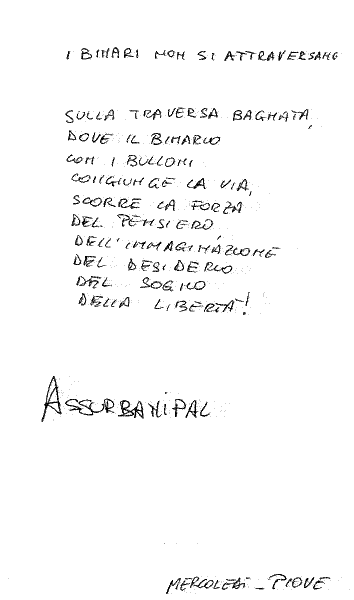 I BINARI NON SI ATTRAVERSANO
SULLA TRAVERSA BAGNATA,
DOVE IL BINARIO
CON I BULLONI
CONGIUNGE LA VIA,
SCORRE LA FORZA
DEL PENSIERO
DELL'IMMAGINAZIONE
DEL DESIDERIO
DEL SOGNO
DELLA LIBERTA'!
ASSURBANIPAL
MERCOLEDÌ - PIOVE